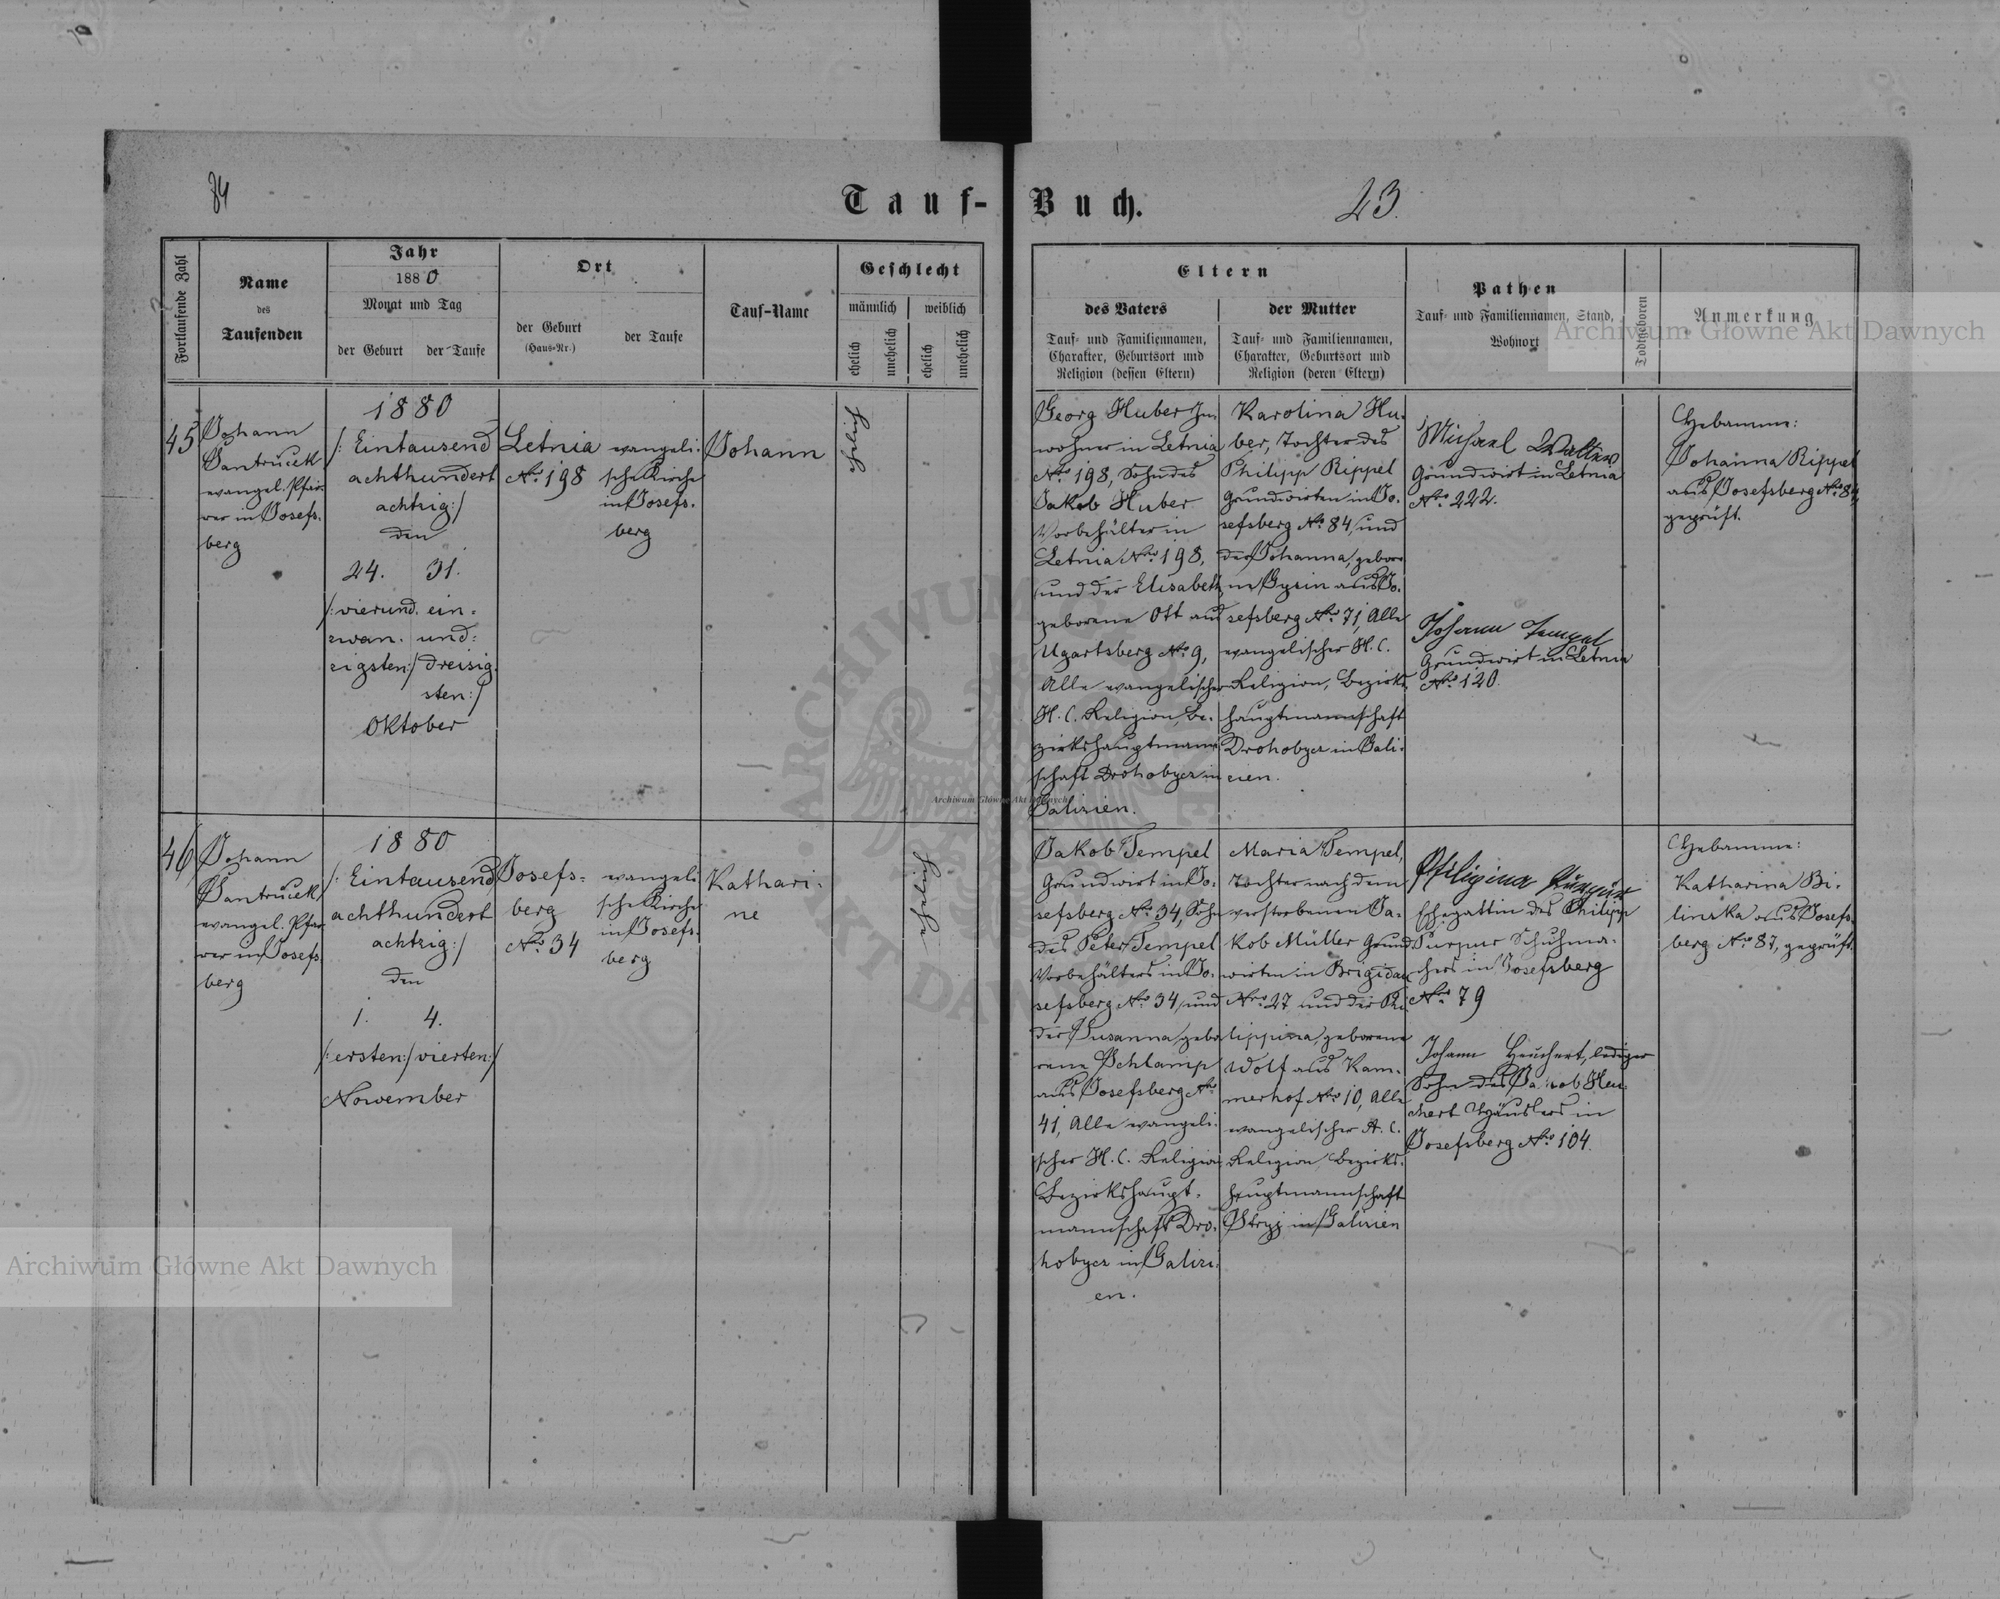 84
Tauf-Buch.
23.
Fortlaufende Zahl
Name
des
Taufenden
Jahr
1880
Monat und Tag
der Geburt
der Taufe
Ort
der Geburt
(Haus-Nr.)
der Taufe
Tauf-Name
Geschlecht
männlich
weiblich
ehelich
unehelich
ehelich
unehelich
Eltern
des Vaters
Tauf- und Familiennamen,
Charakter, Geburtsort und
Religion (dessen Eltern)
der Mutter
Tauf- und Familiennamen,
Charakter, Geburtsort und
Religion (deren Eltern)
Pathen
Tauf- und Familiennamen, Stand,
Wohnort
Todtgeboren
Anmerkung
45
Johann
Santrucek
evangel. Pfar-
rer in Josefs-
berg
1880
/: Eintausend
achthundert
achtzig :/
den
24. 31.
/: vierund- ein-
zwan- und-
zigsten :/ dreisig-
sten :/
Oktober
Letnia
Nro 198
evangeli-
sche Kirche
in Josefs-
berg
Johann
ehelich
Georg Huber In-
wohner in Letnia
Nro 198, Sohn des
Jakob Huber
Vorbehälter in
Letnia Nro 198,
und der Elisabeth
geborene Ott aus
Ugartsberg Nro 9,
Alle evangelischer
H. C. Religion, Be-
zirkshauptmann-
schaft Drohobycz in
Galizien.
Karolina Hu-
ber, Tochter des
Philipp Rippel
Grundwirten in Jo-
sefsberg Nro 84, und
der Johanna, gebore-
ne Gyrin aus Jo-
sefsberg Nro 71, Alle
evangelischer H. C.
Religion, Bezirks-
hauptmannschaft
Drohobycz in Gali-
zien.
Michael Walter
Grundwirt in Letnia
Nro 222.
Johann Tempel
Grundwirt in Letnia
Nro 120.
Hebamme:
Johanna Rippel
aus Josefsberg Nro 84,
geprüft.
46
Johann
Santrucek
evangel. Pfar-
rer in Josefs-
berg
1880
/: Eintausend
achthundert
achtzig :/
den
1. 4.
/: ersten :/ vierten :/
November
Josefs-
berg
Nro 34
evangeli-
sche Kirche
in Josefs-
berg
Kathari-
ne
eheliche
Jakob Tempel
Grundwirt in Jo-
sefsberg Nro 34, Sohn
des Peter Tempel
Vorbehälters in Jo-
sefsberg Nro 34, und
der Susanna, gebo-
rene Schlamp
aus Josefsberg Nro
41, Alle evangeli-
scher H. C. Religion
Bezirkshaupt-
mannschaft Dro-
hobycz in Galizi-
en.
Maria Tempel,
Tochter nach dem
verstorbenen Ja-
kob Müller Grund-
wirten in Brigidau
Nro 27 und der Phi-
lippina, geborene
Wolf aus Kam-
merhof Nro 10, Alle
evangelischer A. C.
Religion, Bezirks-
hauptmannschaft
Stryj in Galizien
Philipina
Ehegattin des Philipp
Purpur Schuhma-
chers in Josefsberg
Nro 79
Johann Heuchert, lediger
Sohn des Jakob Heu-
chert Häuslers in
Josefsberg Nro 104.
Hebamme:
Katharina Bi-
linska aus Josefs-
berg Nro 87, geprüft.
Archiwum Główne Akt Dawnych
Archiwum Główne Akt Dawnych
Archiwum Główne Akt Dawnych